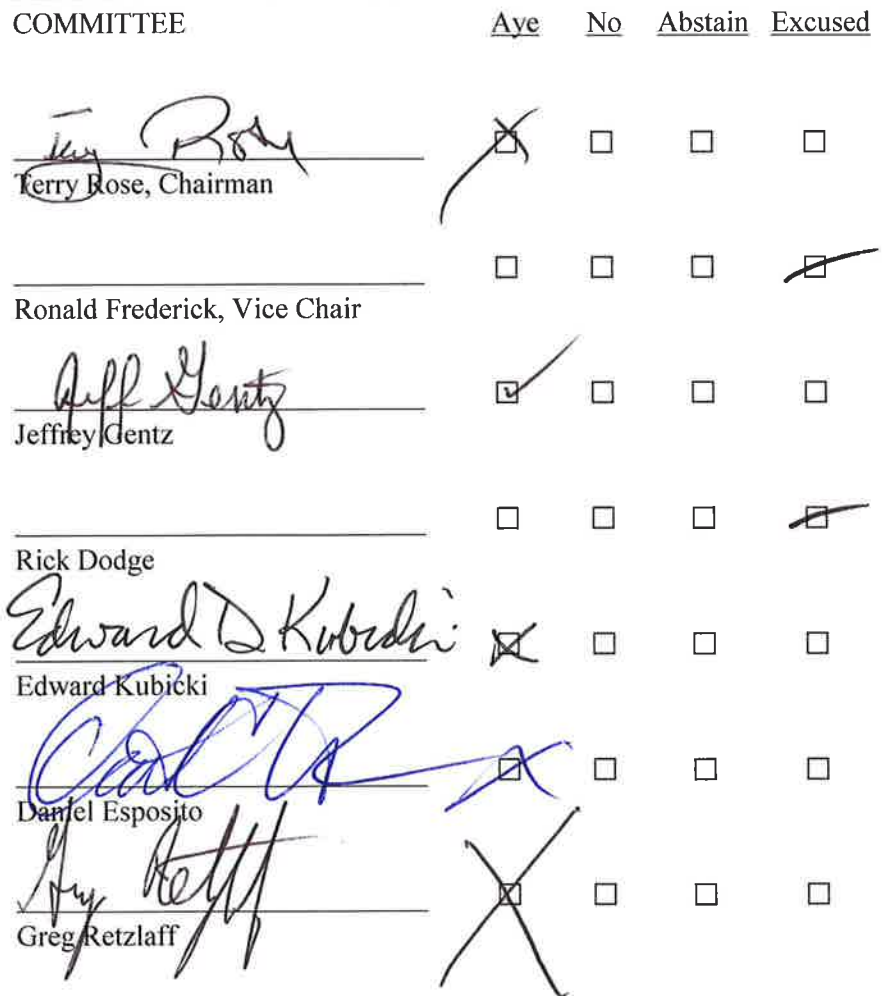 COMMITTEE Aye No Abstain Excused
Terry Rose, Chairman
Ronald Frederick, Vice Chair
Jeff Gentz
Jeffrey Gentz
Rick Dodge
Edward D Kubicki
Edward Kubicki
Daniel Esposito
Greg Retzlaff